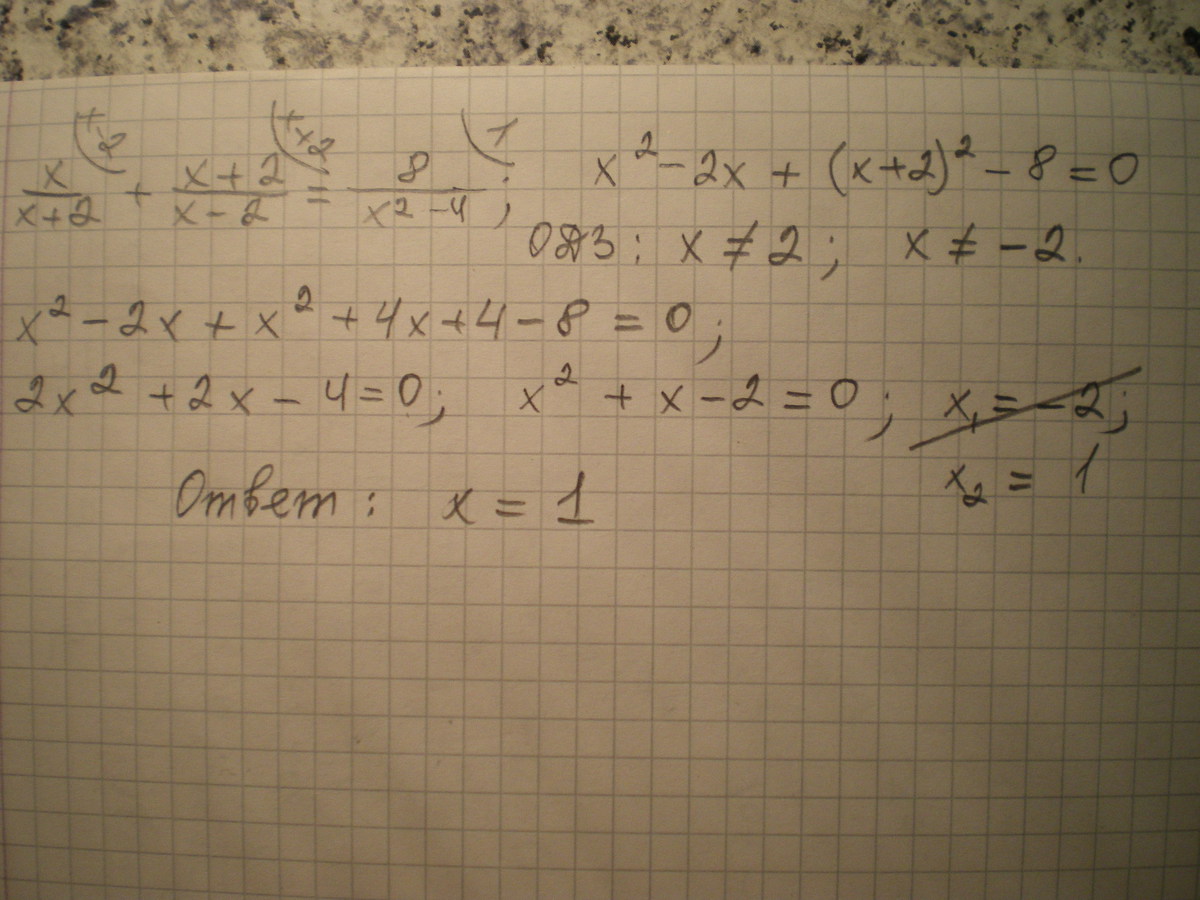 x/(x+2) + (x+2)/(x-2) = 8/(x²-4); x² - 2x + (x+2)² - 8 = 0
ОДЗ: x ≠ 2; x ≠ -2.
x² - 2x + x² + 4x + 4 - 8 = 0;
2x² + 2x - 4 = 0; x² + x - 2 = 0; x₁ = -2;
x₂ = 1
Ответ: x = 1